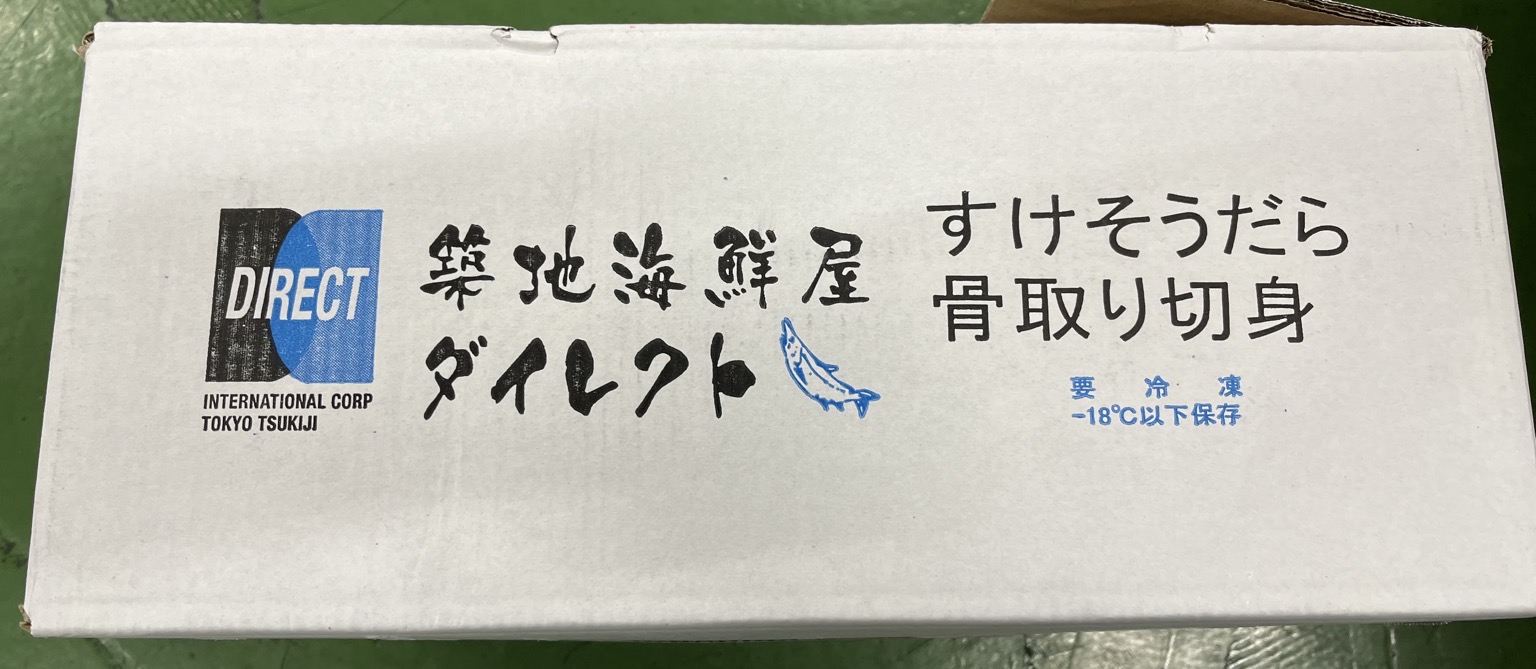 DIRECT
INTERNATIONAL CORP
TOKYO TSUKIJI
築地海鮮屋
ダイレクト
すけそうだら
骨取り切身
要冷凍
-18℃以下保存